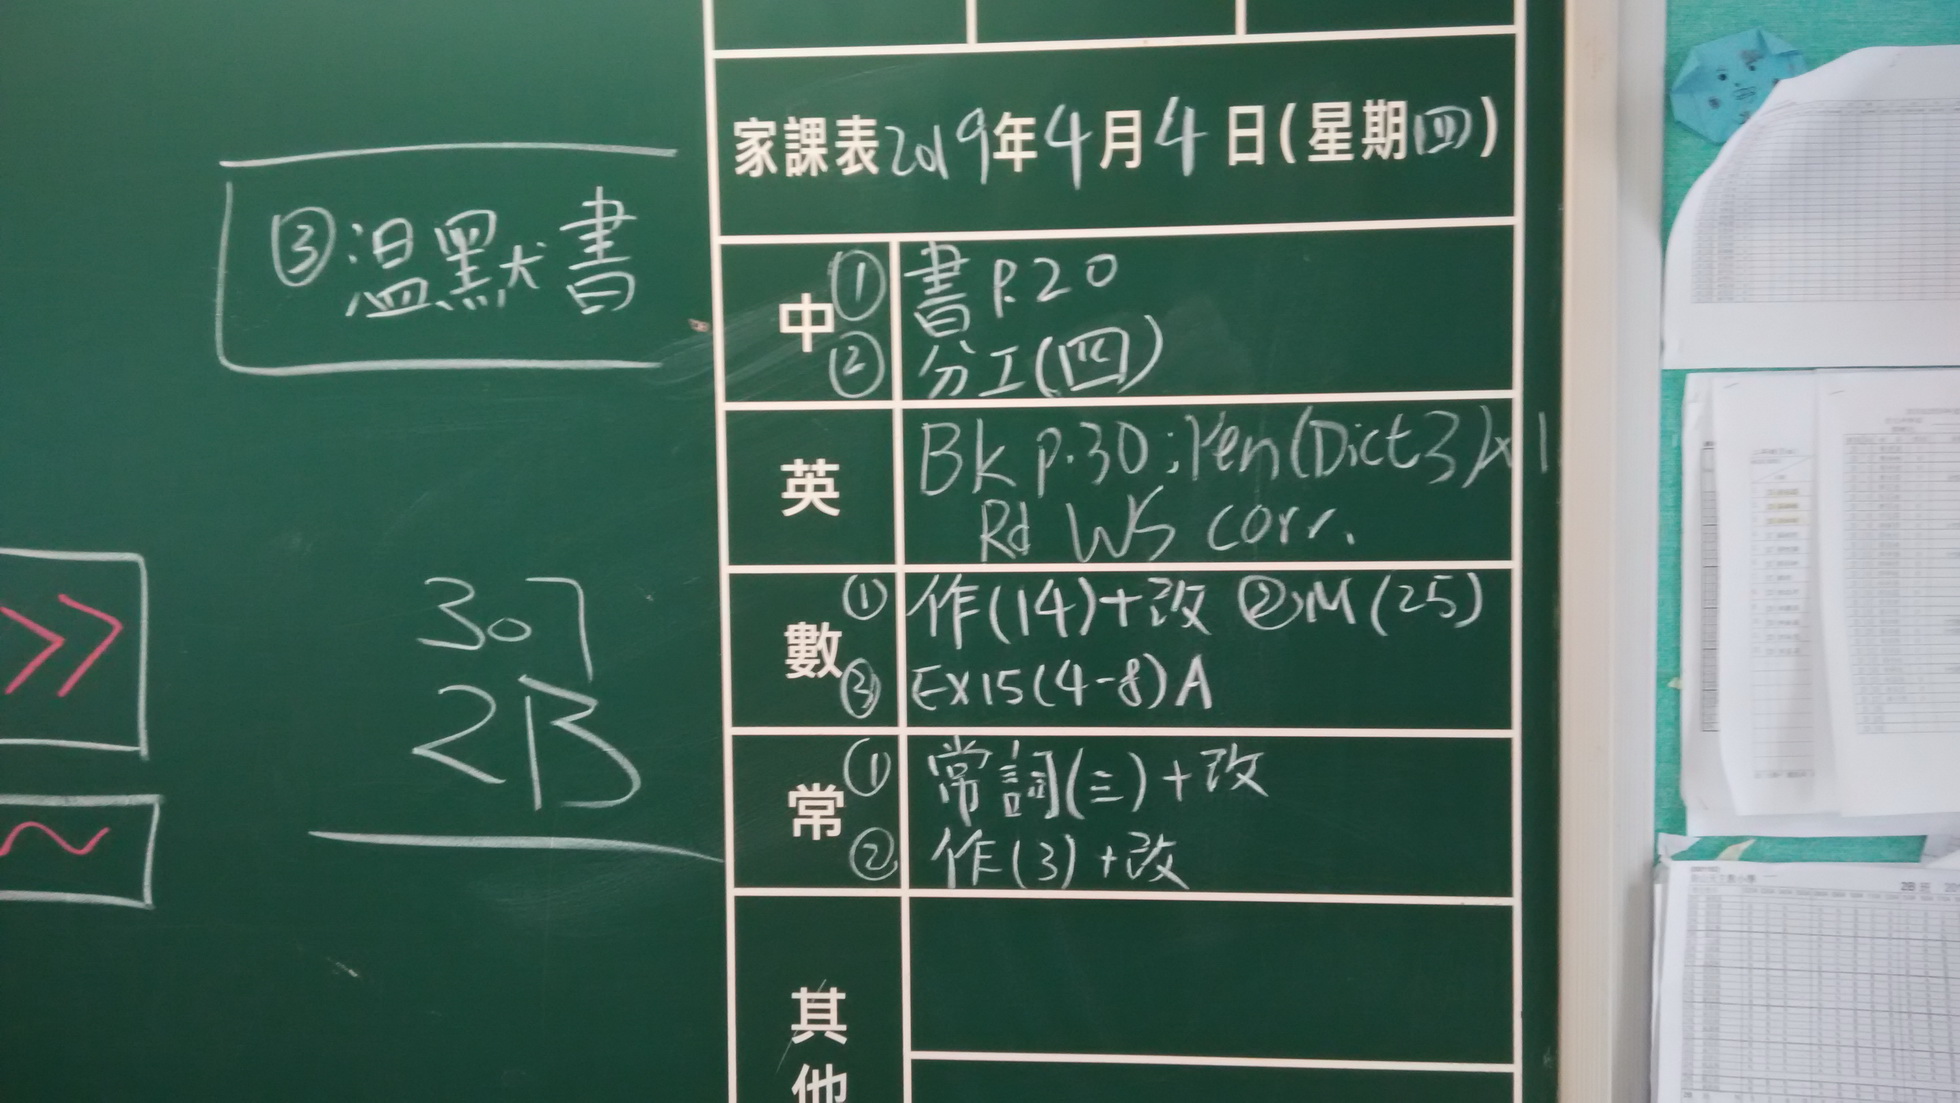 家課表2019年4月4日(星期四)
③溫默書
中
① 書 P.20
② 分工(四)
英
Bk p.30 ; Pen(Dict3)x1
Rd WS corr.
數
① 作(14)+改 ② M(25)
③ EX15(4-8)A
307
2B
常
① 常詞(三)+改
② 作(3)+改
其他
2B